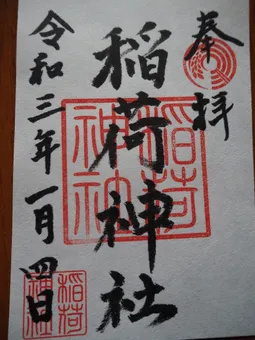 奉拝
稲荷神社
令和三年一月四日
稲荷
神社
稲荷
神社